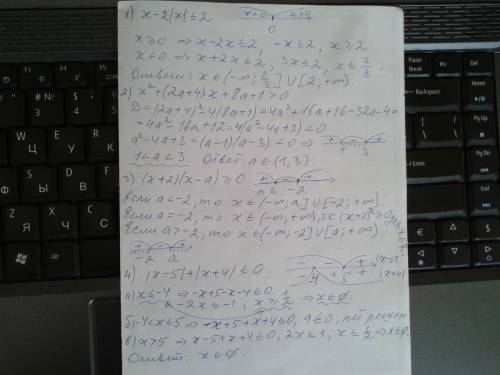 1) x-2|x| ≤ 2
x<0 x>0
0
x ≥ 0 ⇒ x-2x ≤ 2, -x ≤ 2, x ≥ 2.
x < 0 ⇒ x+2x ≤ 2, 3x ≤ 2, x ≤ 2/3
Ответ: x ∈ (-∞; 2/3] ∪ [2; +∞)
2) x²+(2a+4)x+8a+1>0
D=(2a+4)²-4(8a+1)=4a²+16a+16-32a-4=
=4a²-16a+12=4(a²-4a+3)<0
a²-4a+3=(a-1)(a-3)<0 ⇒
+ - +
1 3
1<a<3. Ответ: a ∈ (1, 3)
3) (x+2)(x-a) ≥ 0
+ - +
a -2
Если a<-2, то x ∈ (-∞; a] ∪ [-2; +∞)
Если a=-2, то x ∈ (-∞; +∞), т.к (x+2)² ≥ 0
Если a>-2, то x ∈ (-∞; -2] ∪ [a; +∞)
+ - +
-2 a
4) |x-5|+|x+4| ≤ 0
- - + |x-5|
-4 + 5 + |x+4|
а) x ≤ -4 ⇒ -x+5-x-4 ≤ 0,
-2x ≤ -1, x ≥ 1/2 ⇒ x ∈ ∅.
б) -4<x≤5 ⇒ -x+5+x+4 ≤ 0, 9 ≤ 0, нет решен
в) x>5 ⇒ x-5+x+4 ≤ 0, 2x ≤ 1, x ≤ 1/2 ⇒ x ∈ ∅.
Ответ: x ∈ ∅.